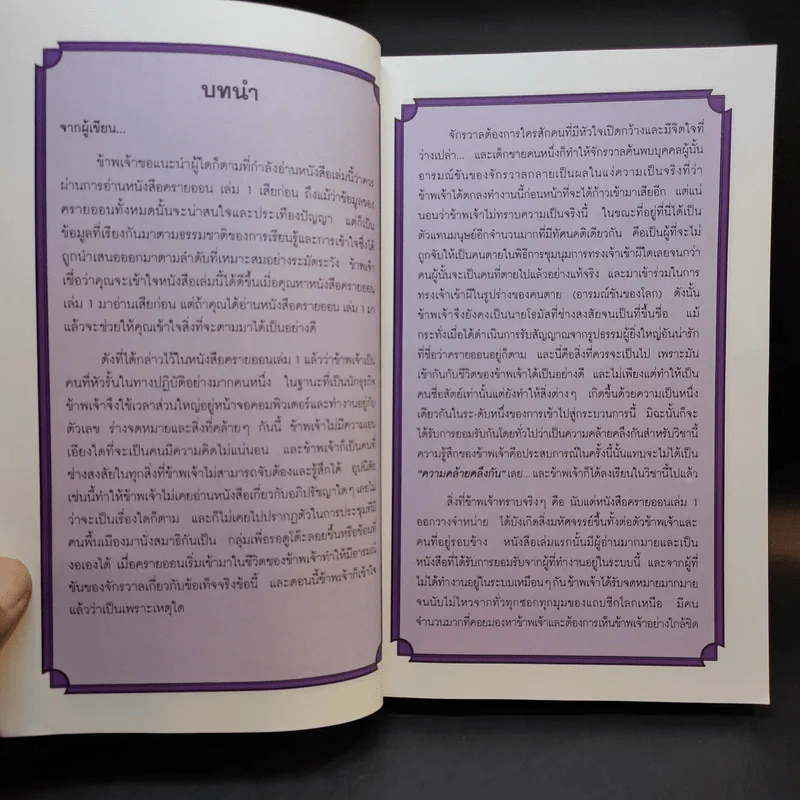 บทนำ
จากผู้เขียน...
ข้าพเจ้าขอแนะนำผู้ใดก็ตามที่กำลังอ่านหนังสือเล่มนี้ว่าควร
ผ่านการอ่านหนังสือครายออน เล่ม 1 เสียก่อน ถึงแม้ว่าข้อมูลของ
ครายออนทั้งหมดนั้นจะน่าสนใจและประเทืองปัญญา แต่ก็เป็น
ข้อมูลที่เรียงกันมาตามธรรมชาติของการเรียนรู้และการเข้าใจซึ่งได้
ถูกนำเสนอออกมาตามลำดับที่เหมาะสมอย่างระมัดระวัง ข้าพเจ้า
เชื่อว่าคุณจะเข้าใจหนังสือเล่มนี้ได้ดีขึ้นเมื่อคุณหาหนังสือครายออน
เล่ม 1 มาอ่านเสียก่อน แต่ถ้าคุณได้อ่านหนังสือครายออน เล่ม 1 มา
แล้วจะช่วยให้คุณเข้าใจสิ่งที่จะตามมาได้เป็นอย่างดี
ดังที่ได้กล่าวไว้ในหนังสือครายออนเล่ม 1 แล้วว่าข้าพเจ้าเป็น
คนที่หัวรั้นในทางปฏิบัติอย่างมากคนหนึ่ง ในฐานะที่เป็นนักธุรกิจ
ข้าพเจ้าจึงใช้เวลาส่วนใหญ่อยู่หน้าจอคอมพิวเตอร์และทำงานอยู่กับ
ตัวเลข ร่างจดหมายและสิ่งที่คล้ายๆ กันนี้ ข้าพเจ้าไม่มีความเอน
เอียงใดที่จะเป็นคนมีความคิดไม่แน่นอน และข้าพเจ้าก็เป็นคนที่
ช่างสงสัยในทุกสิ่งที่ข้าพเจ้าไม่สามารถจับต้องและรู้สึกได้ อุปนิสัย
เช่นนี้ทำให้ข้าพเจ้าไม่เคยอ่านหนังสือเกี่ยวกับอภิปรัชญาใดๆ เลยไม่
ว่าจะเป็นเรื่องใดก็ตาม และก็ไม่เคยไปปรากฏตัวในการประชุมที่มี
คนพื้นเมืองมานั่งสมาธิกันเป็น กลุ่มเพื่อรอดูโต๊ะลอยขึ้นหรือช้อนที่
งอเองได้ เมื่อครายออนเริ่มเข้ามาในชีวิตของข้าพเจ้าทำให้มีอารมณ์
ขันของจักรวาลเกี่ยวกับข้อเท็จจริงข้อนี้ และตอนนี้ข้าพเจ้าก็เข้าใจ
แล้วว่าเป็นเพราะเหตุใด
จักรวาลต้องการใครสักคนที่มีหัวใจเปิดกว้างและมีจิตใจที่
ว่างเปล่า... และเด็กชายคนหนึ่งก็ทำให้จักรวาลค้นพบบุคคลผู้นั้น
อารมณ์ขันของจักรวาลกลายเป็นผลในแง่ความเป็นจริงที่ว่า
ข้าพเจ้าได้ตกลงทำงานนี้ก่อนหน้าที่จะได้ก้าวเข้ามาเสียอีก แต่แน่
นอนว่าข้าพเจ้าไม่ทราบความเป็นจริงนี้ ในขณะที่อยู่ที่นี่ได้เป็น
ตัวแทนมนุษย์อีกจำนวนมากที่มีทัศนคติเดียวกัน คือเป็นผู้ที่จะไม่
ถูกจับให้เป็นคนตายในพิธีการชุมนุมการทรงเจ้าเข้าผีใดเลยจนกว่า
คนผู้นั้นจะเป็นคนที่ตายไปแล้วอย่างแท้จริง และมาเข้าร่วมในการ
ทรงเจ้าเข้าผีในรูปร่างของคนตาย (อารมณ์ขันของโลก) ดังนั้น
ข้าพเจ้าจึงยังคงเป็นนายโธมัสที่ช่างสงสัยจนเป็นที่ขึ้นชื่อ แม้
กระทั่งเมื่อได้ดำเนินการรับสัญญาณจากรูปธรรมผู้ยิ่งใหญ่อันน่ารัก
ที่ชื่อว่าครายออนอยู่ก็ตาม และนี่คือสิ่งที่ควรจะเป็นไป เพราะมัน
เข้ากันกับชีวิตของข้าพเจ้าได้เป็นอย่างดี และไม่เพียงแต่ทำให้เป็น
คนซื่อสัตย์เท่านั้นแต่ยังทำให้สิ่งต่างๆ เกิดขึ้นด้วยความเป็นหนึ่ง
เดียวกันในระดับหนึ่งของการเข้าไปสู่กระบวนการนี้ มิฉะนั้นก็จะ
ได้รับการยอมรับกันโดยทั่วไปว่าเป็นความคล้ายคลึงกันสำหรับวิชานี้
ความรู้สึกของข้าพเจ้าคือประสบการณ์ในครั้งนี้นั้นแทบจะไม่ได้เป็น
"ความคล้ายคลึงกัน" เลย... และข้าพเจ้าก็ได้ลงเรียนในวิชานี้ไปแล้ว
สิ่งที่ข้าพเจ้าทราบจริงๆ คือ นับแต่หนังสือครายออนเล่ม 1
ออกวางจำหน่าย ได้บังเกิดสิ่งมหัศจรรย์ขึ้นทั้งต่อตัวข้าพเจ้าและ
คนที่อยู่รอบข้าง หนังสือเล่มแรกนั้นมีผู้อ่านมากมายและเป็น
หนังสือที่ได้รับการยอมรับจากผู้ที่ทำงานอยู่ในระบบนี้ และจากผู้ที่
ไม่ได้ทำงานอยู่ในระบบเหมือนๆ กัน ข้าพเจ้าได้รับจดหมายมากมาย
จนนับไม่ไหวจากทั่วทุกซอกทุกมุมของแถบซีกโลกเหนือ มีคน
จำนวนมากที่คอยมองหาข้าพเจ้าและต้องการเห็นข้าพเจ้าอย่างใกล้ชิด